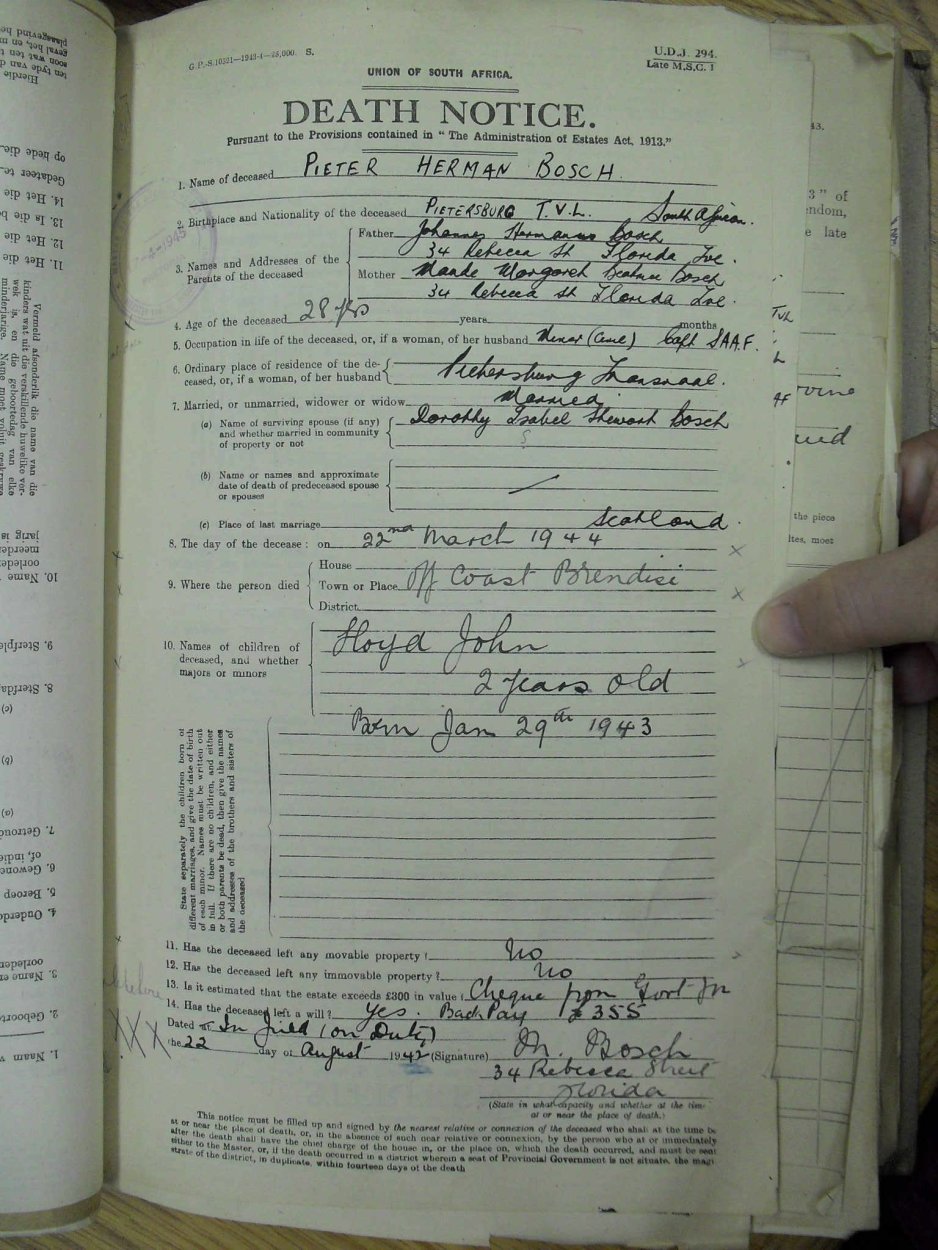 G.P.-S.10321—1943-4—25,000. S.
U.D.J. 294.
Late M.S.C. 1
UNION OF SOUTH AFRICA.
DEATH NOTICE.
Pursuant to the Provisions contained in "The Administration of Estates Act, 1913."
1. Name of deceased PIETER HERMAN BOSCH.
2. Birthplace and Nationality of the deceased PIETERSBURG T.V.L. South African.
3. Names and Addresses of the Parents of the deceased
Father Johannes Hermanus Bosch
34 Rebecca St Florida Tve.
Mother Maude Margaret Beatrice Bosch
34 Rebecca St Florida Tve.
4. Age of the deceased 28 yrs years months
5. Occupation in life of the deceased, or, if a woman, of her husband Miner Capt SAAF.
6. Ordinary place of residence of the de-
ceased, or, if a woman, of her husband Pietersburg Transvaal.
7. Married, or unmarried, widower or widow Married
(a) Name of surviving spouse (if any) Dorothy Isabel Stewart Bosch
and whether married in community
of property or not
(b) Name or names and approximate
date of death of predeceased spouse
or spouses
(c) Place of last marriage Scotland.
8. The day of the decease: on 22nd March 1944
9. Where the person died
House
Town or Place Off Coast Brendisi
District
10. Names of children of
deceased, and whether
majors or minors
Lloyd John
2 years old
Born Jan 29th 1943
State separately the children born of
different marriages, and give the date of birth
of each minor. Names must be written out
in full. If there are no children, and either
or both parents be dead, then give the names
and addresses of the brothers and sisters of
the deceased
11. Has the deceased left any movable property? No
12. Has the deceased left any immovable property? No
13. Is it estimated that the estate exceeds £300 in value? Cheque from Govt
14. Has the deceased left a will? Yes. Back Pay £355
Dated at In field (on Duty)
the 22 day of August 1942 (Signature) M. Bosch
34 Rebecca Street
Florida
(State in what capacity and whether at the time
at or near the place of death.)
This notice must be filled up and signed by the nearest relative or connexion of the deceased who shall at the time be
at or near the place of death, or, in the absence of such near relative or connexion, by the person who at or immediately
after the death shall have the chief charge of the house in, or the place on, which the death occurred, and must be sent
either to the Master, or, if the death occurred in a district wherein a seat of Provincial Government is not situate, the magi
strate of the district, in duplicate, within fourteen days of the death